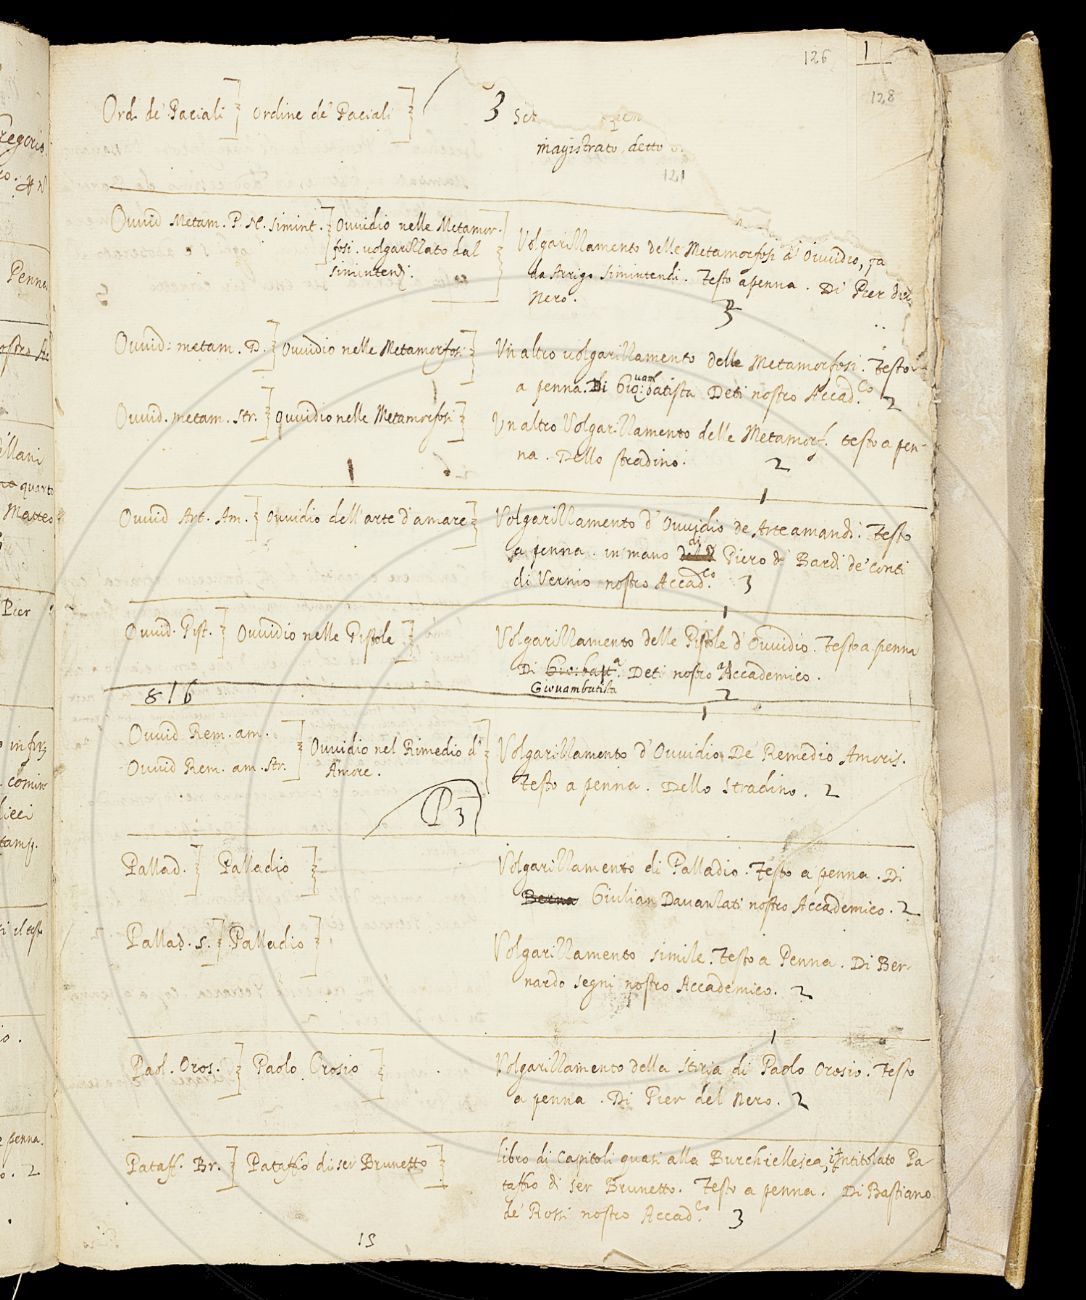 126 1
128
Ord. de' Paciali] ordine de' Paciali] 3
magistrato detto
121
Ovvid Metam. P. N. simint.] Ovvidio nelle Metamor-
fosi volgarillato dal
simintendi.
Volgarillamento delle Metamorfosi d' Ovvidio,
da Arrigo Simintendi. Testo a penna. Di Pier del
Nero. 3
Ovvid: metam. D.] Ovvidio nelle Metamorfosi] Un altro volgarillamento delle Metamorfosi. Testo
a penna. Di Giovambatista Deti nostro Accad.co 2
Ovvid. metam. Str.] Ovvidio nelle Metamorfosi] Un altro Volgarillamento delle Metamorf. testo a pen-
na. Dello stradino. 2
1
Ovvid Art. Am.] Ovvidio dell' arte d' amare] Volgarillamento d' Ovvidio de Arte amandi. Testo
a penna. in mano di Piero de Bardi de' Conti
di Vernio nostro Accad.co 3
1
Ovvid. Pist.] Ovvidio nelle Pistole] Volgarillamento delle Pistole d' Ovvidio. Testo a penna
Di Gio: bast.a Deti nostro Accademico.
Giovambatista 2
816
1
Ovvid Rem. am.
Ovvid Rem. am. Str.] Ovvidio nel Rimedio d'
Amore.
Volgarillamento d' Ovvidio De Remedio Amoris.
Testo a penna. Dello stradino. 2
P 3
Pallad.] Palladio] Volgarillamento di Palladio. Testo a penna. Di
Berna Giulian Davanlati nostro Accademico. 2
Pallad. S.] Palladio] Volgarillamento simile. Testo a Penna. Di Ber-
nardo Segni nostro Accademico. 2
1
Paol. Oros.] Paolo Orosio] Volgarillamento della storia di Paolo Orosio. Testo
a penna. Di Pier del Nero. 2
Pataff. Br.] Pataffio di ser Brunetto] libro di Capitoli quasi alla Burchiellesca, intitolato Pa-
taffio di ser Brunetto. Testo a penna. Di Bastiano
de' Rossi nostro Accad.co 3
15